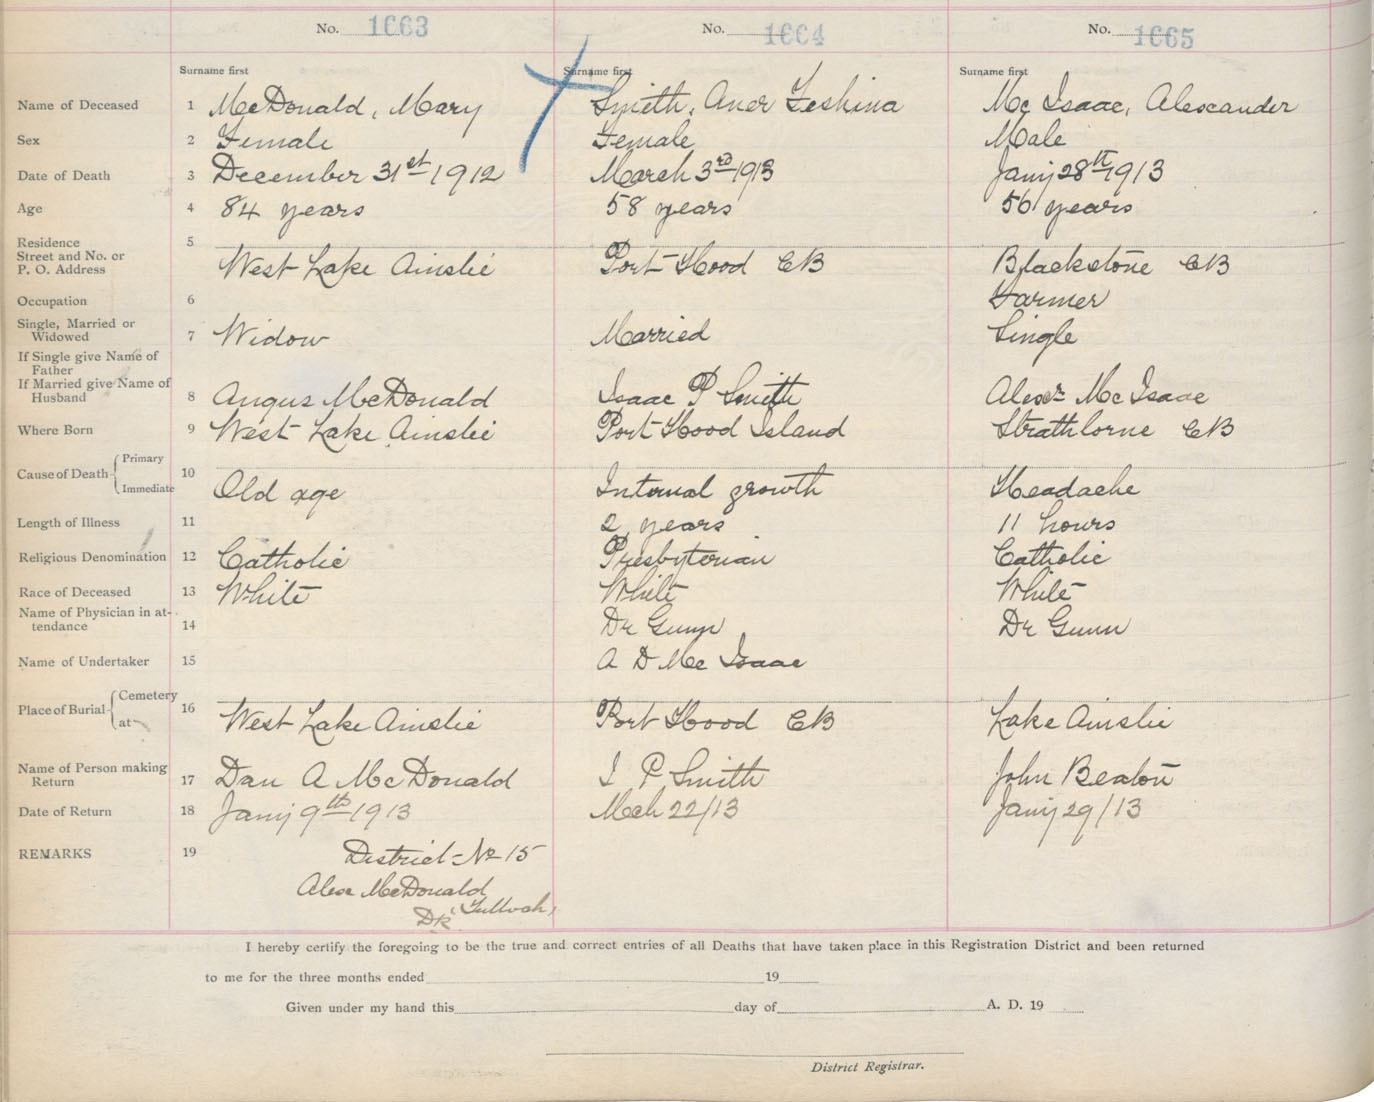 No. 1663 No. 1664 No. 1665
Surname first Surname first Surname first
Name of Deceased 1 McDonald, Mary Smith, Aner Teshina Mc Isaac, Alexander
Sex 2 Female Female Male
Date of Death 3 December 31st 1912 March 3rd 1913 Jany 28th 1913
Age 4 84 years 58 years 56 years
Residence 5
Street and No. or
P. O. Address West Lake Ainslie Port Hood CB Blackstone CB
Occupation 6 Farmer
Single, Married or
Widowed 7 Widow Married Single
If Single give Name of
Father
If Married give Name of
Husband 8 Angus McDonald Isaac P Smith Alexr Mc Isaac
Where Born 9 West Lake Ainslie Port Hood Island Strathlorne CB
Cause of Death Primary 10
Immediate Old age Internal growth Headache
Length of Illness 11 2 years 11 hours
Religious Denomination 12 Catholic Presbyterian Catholic
Race of Deceased 13 White White White
Name of Physician in at-
tendance 14 Dr Gunn Dr Gunn
Name of Undertaker 15 A D Mc Isaac
Place of Burial Cemetery 16
at West Lake Ainslie Port Hood CB Lake Ainslie
Name of Person making
Return 17 Dan A McDonald I P Smith John Beaton
Date of Return 18 Jany 9th 1913 Mch 22/13 Jany 29/13
REMARKS 19 District No 15
Alex McDonald
DR
I hereby certify the foregoing to be the true and correct entries of all Deaths that have taken place in this Registration District and been returned
to me for the three months ended 19
Given under my hand this day of A. D. 19
District Registrar.